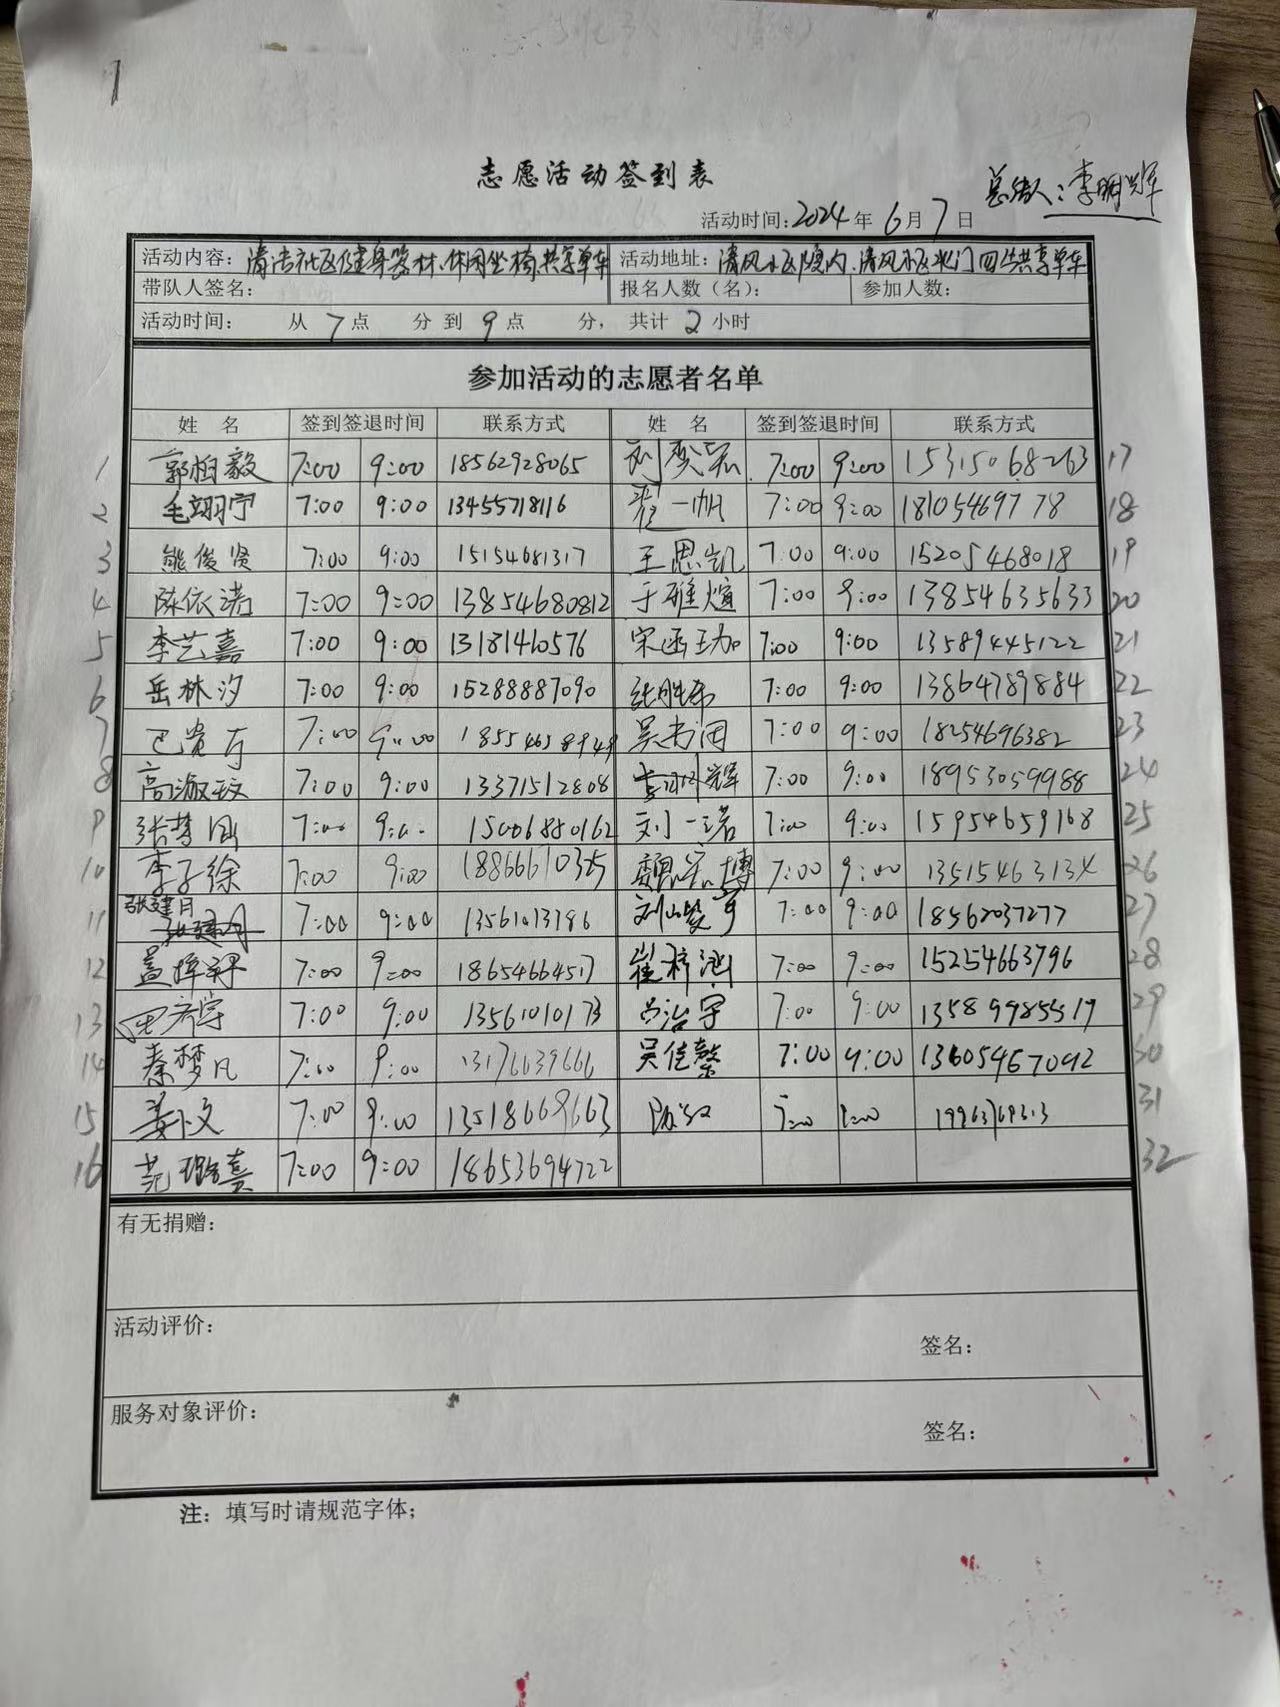 志愿活动签到表
总结人:李明辉
活动时间:2024年6月7日
活动内容: 清洁社区健身器材、休闲坐椅、共享单车 活动地址: 清风小区院内、清风小区北门四共享单车
带队人签名: 报名人数(名): 参加人数:
活动时间: 从7点 分到9点 分, 共计2小时
参加活动的志愿者名单
姓 名 签到签退时间 联系方式 姓 名 签到签退时间 联系方式
1 郭柏毅 7:00 9:00 18562928065 刘奕宏 7:00 9:00 15315068263 17
2 毛翊宁 7:00 9:00 13455718116 翟一帆 7:00 9:00 18105469778 18
3 熊俊贤 7:00 9:00 15154681317 王思凯 7:00 9:00 15205468018 19
4 陈依诺 7:00 9:00 13854680812 于雅煊 7:00 9:00 13854635633 20
5 李艺嘉 7:00 9:00 13181460576 宋函珈 7:00 9:00 13589445122 21
6 岳林汐 7:00 9:00 15288887090 7:00 9:00 13864789884 22
7 7:00 9:00 18554658949 吴书闲 7:00 9:00 18254696382 23
8 高淑玟 7:00 9:00 13371512808 李明辉 7:00 9:00 18953059988 24
9 张梦涵 7:00 9:00 15006850162 刘一诺 7:00 9:00 15954659168 25
10 李子徐 7:00 9:00 18866610325 魏宏博 7:00 9:00 13515463134 26
11 张建月 7:00 9:00 13561013786 7:00 9:00 18562037277 27
12 7:00 9:00 18654664517 崔梓涵 7:00 9:00 15254663796 28
13 7:00 9:00 13561010173 吕治宇 7:00 9:00 13589985517 29
14 秦梦凡 7:00 9:00 13176639666 吴佳馨 7:00 9:00 13605467092 30
15 7:00 9:00 13518669663 7:00 9:00 31
16 范璐熹 7:00 9:00 18653694722 32
有无捐赠:
活动评价:
签名:
服务对象评价:
签名:
注: 填写时请规范字体;